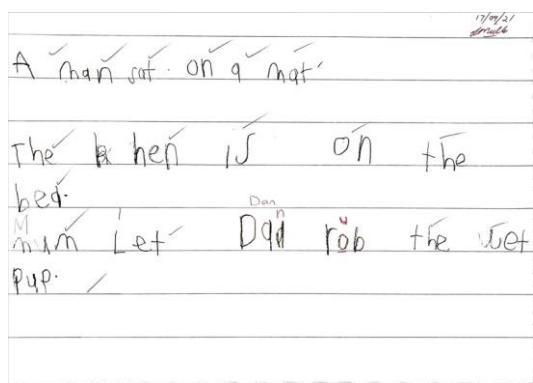 17/09/21
A man sat. on a mat.
The hen is on the
bed.
Dan
mum Let Dad rob the wet
pup.